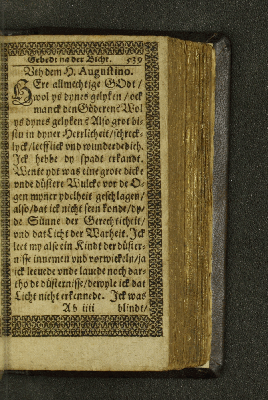 Gebedt na der Bicht. 539
Uth dem H. Augustino.
HEre allmechtige GOdt /
wol ys dynes gelyken / ock
manck den Göderen? Wol
ys dynes gelyken? Also grot bi-
stu in dyner Herrlicheit / schreck-
lyck / leefflick vnd wunderbarlich.
Ick hebbe dy spade erkandt.
Wente ydt was eine grote dicke
vnde düstere Wulcke vor de O-
gen myner ydelheit geschlagen /
also / dat ick nicht seen konde / dy-
de Sünne der Gerechticheit /
vnd dat Licht der Warheit. Ick
leet my alse ein Kindt der düster-
nisse innemen vnd vorwickeln / ja
ick leevede vnde lavede noch dar-
tho de düsternisse / dewyle ick dat
Licht nicht erkennede. Ick was
Ab iiii blindt /